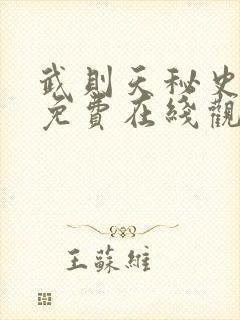 武則天秘史
免費在綫觀
王蘇維